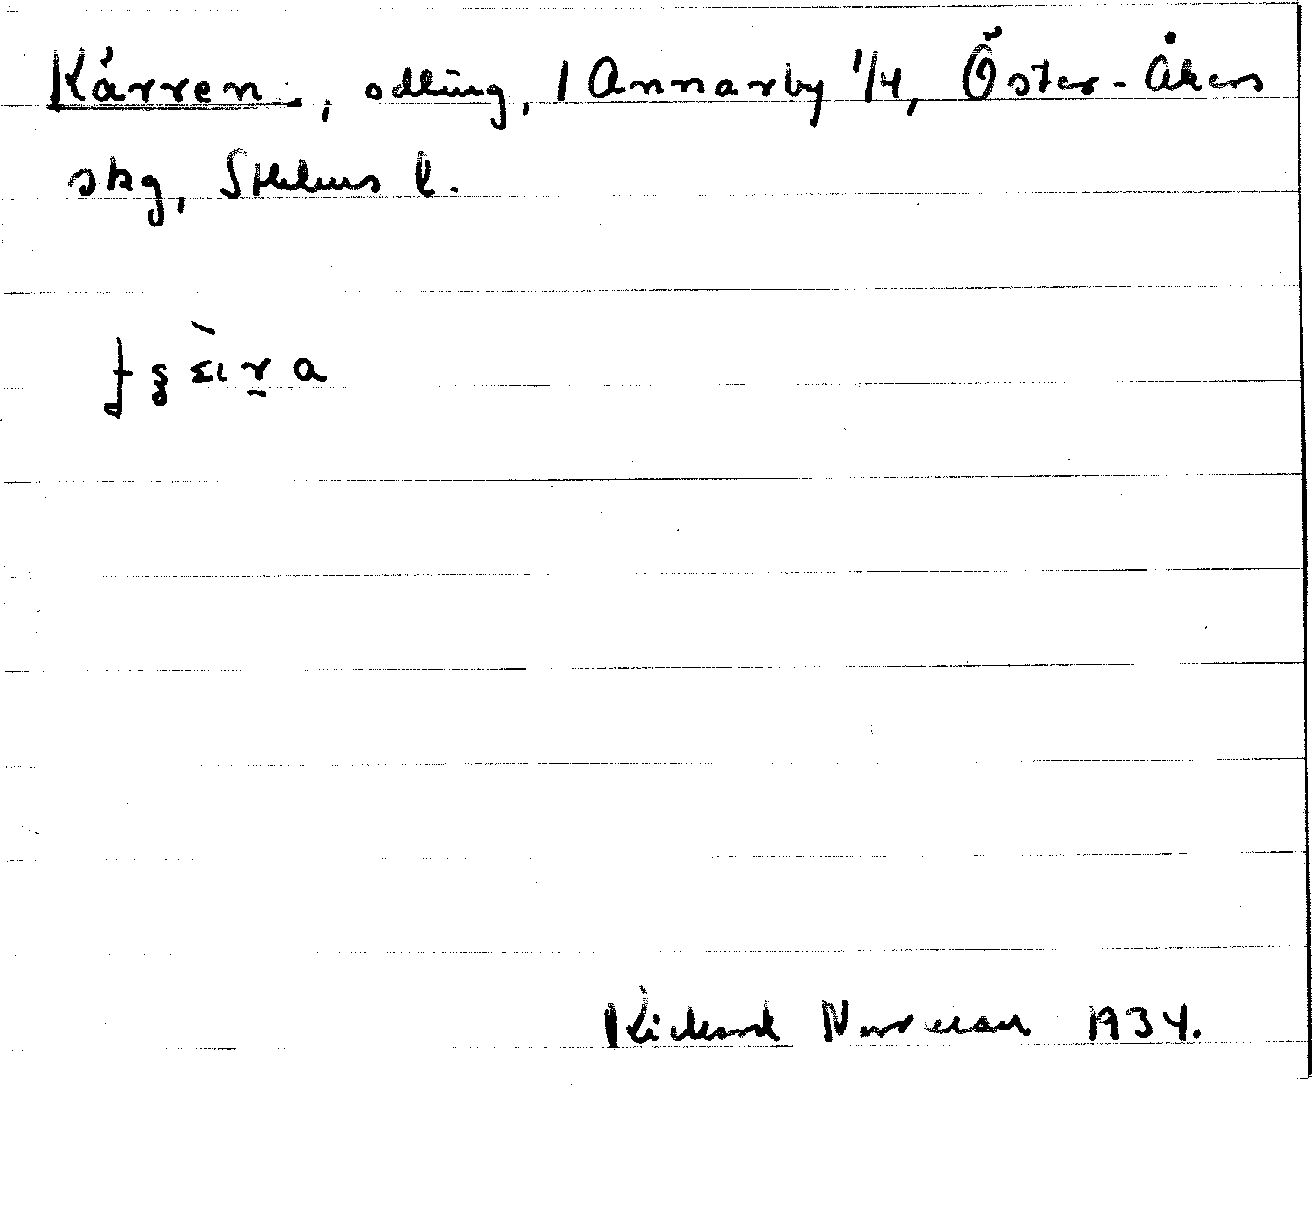 Kärren, odling, 1 Annarby 1/4, Öster-Åkers
skg, Sthlms l.
Richard Norrman 1934.